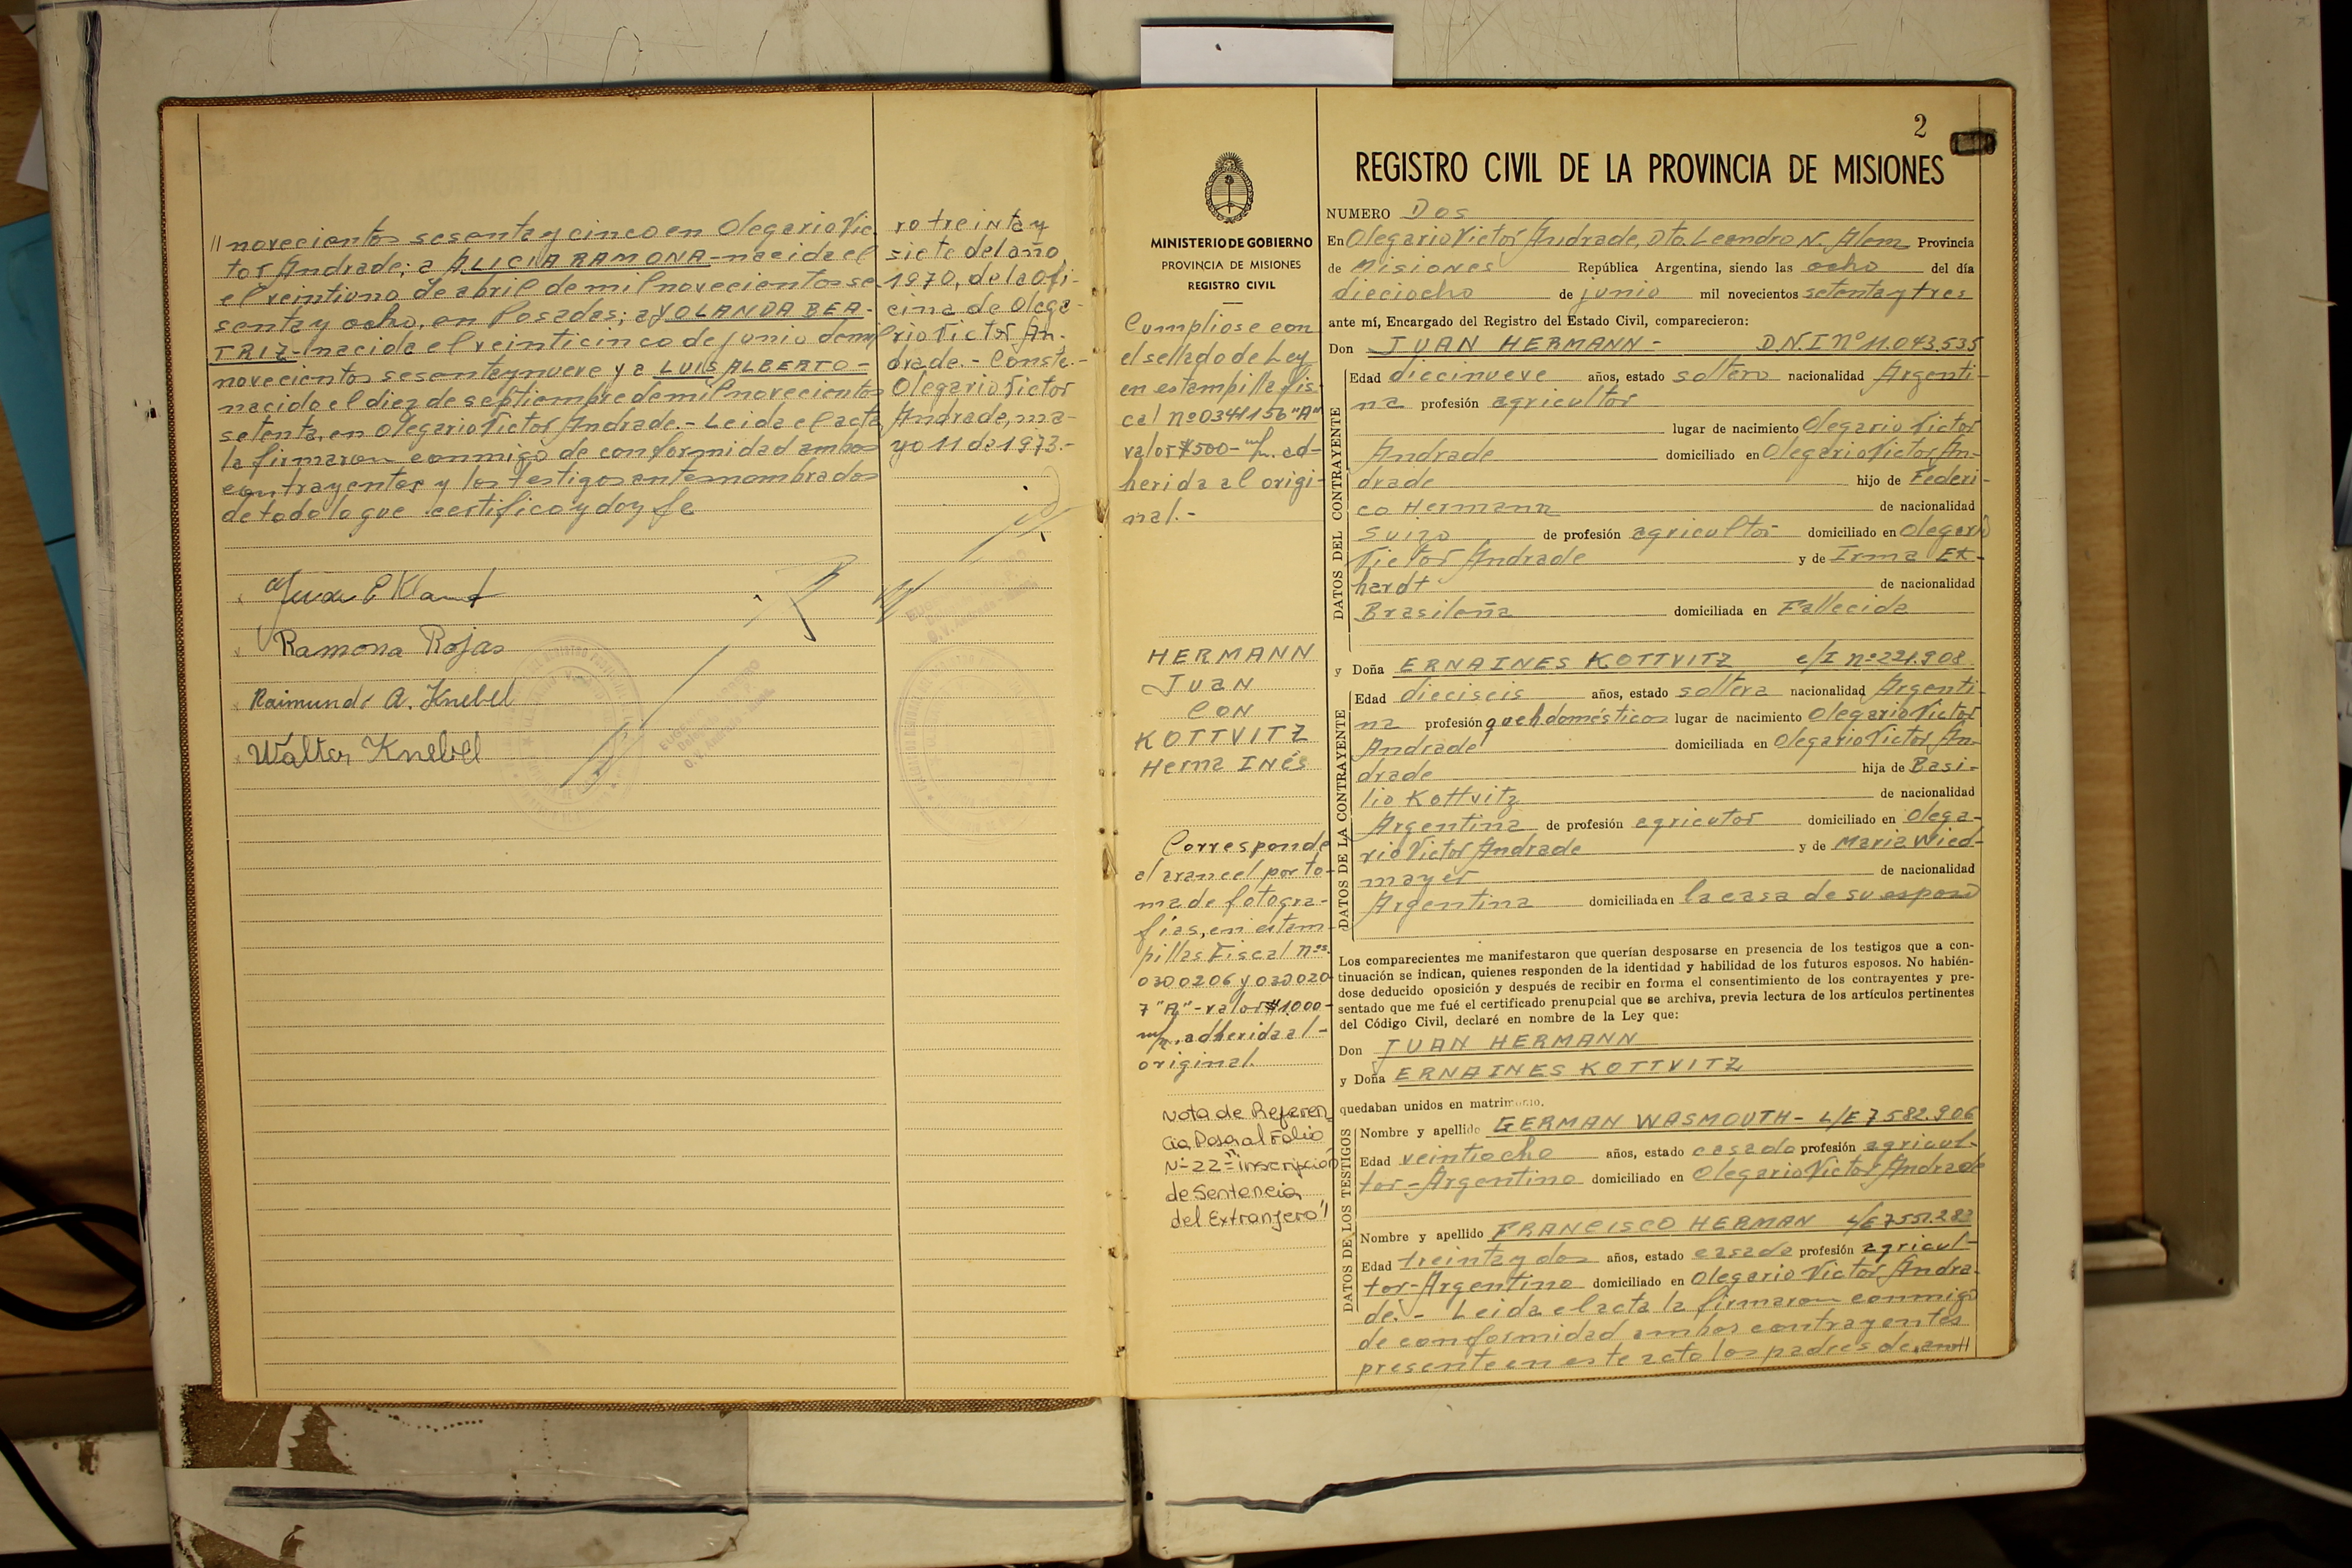 // novecientos sesenta y cinco en Olegario Vic
tor Andrade; a ALICIA RAMONA - nacida el
el veintiuno de abril de mil novecientos se
senta y ocho, en Posadas; a YOLANDA BEA-
TRIZ - nacida el veinticinco de junio de mil
novecientos sesentaynueve y a LUIS ALBERTO -
nacido el diez de septiembre de mil novecientos
setenta, en Olegario Victor Andrade.- Leida el acta
la firmaron conmigo de conformidad ambos
contrayentes y los testigos antesnombrados
de todo lo que certifico y doy fe
Ramona Rojas
Raimundo A. Knebel
Walter Knebel
ro treinta y
siete del año
1970, de la ofi-
cina de Olega-
rio Victor An-
drade.- Conste.-
Olegario Victor
Andrade, ma-
yo 11 de 1973.-
MINISTERIO DE GOBIERNO
PROVINCIA DE MISIONES
REGISTRO CIVIL
Cumpliose con
el sellado de Ley
en estampilla fis-
cal nº 0341156 "A"
valor $500- m/n. ad-
herida al origi-
nal.-
HERMANN
Juan
CON
KOTTVITZ
Herna INés
Corresponde
al arancel por to-
ma de fotogra-
fías, en estam-
pillas Fiscal nos.
0300206 y 030020
7 "A" - valor $1.000-
m/n. adherida al -
original.
Nota de Referen
cia, Pasa al Folio
Nº 22 = "inscripción
de Sentencia
del Extranjero"
2
REGISTRO CIVIL DE LA PROVINCIA DE MISIONES
NUMERO Dos
En Olegario Victor Andrade, Dto. Leandro N. Alem Provincia
de Misiones República Argentina, siendo las ocho del día
dieciocho de junio mil novecientos setenta y tres
ante mí, Encargado del Registro del Estado Civil, comparecieron:
Don JUAN HERMANN - D.N.I Nº 11.043.535
DATOS DEL CONTRAYENTE
Edad diecinueve años, estado soltero nacionalidad Argenti-
na profesión agricultor
lugar de nacimiento Olegario Victor
Andrade domiciliado en Olegario Victor An-
drade hijo de Federi-
co Hermann de nacionalidad
suizo de profesión agricultor domiciliado en Olegario
Victor Andrade y de Irma
hardt de nacionalidad
Brasileña domiciliada en Fallecida
y Doña ERNA INES KOTTVITZ c/I nº 221.908
DATOS DE LA CONTRAYENTE
Edad dieciseis años, estado soltera nacionalidad Argenti-
na profesión queh. domésticos lugar de nacimiento Olegario Victor
Andrade domiciliada en Olegario Victor An-
drade hija de Basi-
lio Kottvitz de nacionalidad
Argentina de profesión agricutor domiciliado en Olega-
rio Victor Andrade y de Maria Wied-
mayer de nacionalidad
Argentina domiciliada en la casa de su esposo
Los comparecientes me manifestaron que querían desposarse en presencia de los testigos que a con-
tinuación se indican, quienes responden de la identidad y habilidad de los futuros esposos. No habién-
dose deducido oposición y después de recibir en forma el consentimiento de los contrayentes y pre-
sentado que me fué el certificado prenupcial que se archiva, previa lectura de los artículos pertinentes
del Código Civil, declaré en nombre de la Ley que:
Don JUAN HERMANN
y Doña ERNA INES KOTTVITZ
quedaban unidos en matrimonio.
DATOS DE LOS TESTIGOS
Nombre y apellido GERMAN WASMOUTH - L/E 7582.906
Edad veintiocho años, estado casado profesión agricul-
tor - Argentino domiciliado en Olegario Victor Andrade
Nombre y apellido FRANCISCO HERMAN L/E 7551.283
Edad treinta y dos años, estado casado profesión agricul-
tor - Argentino domiciliado en Olegario Victor Andra-
de.- Leida el acta la firmaron conmigo
de conformidad ambos contrayentes
presente en este acto los padres de am//